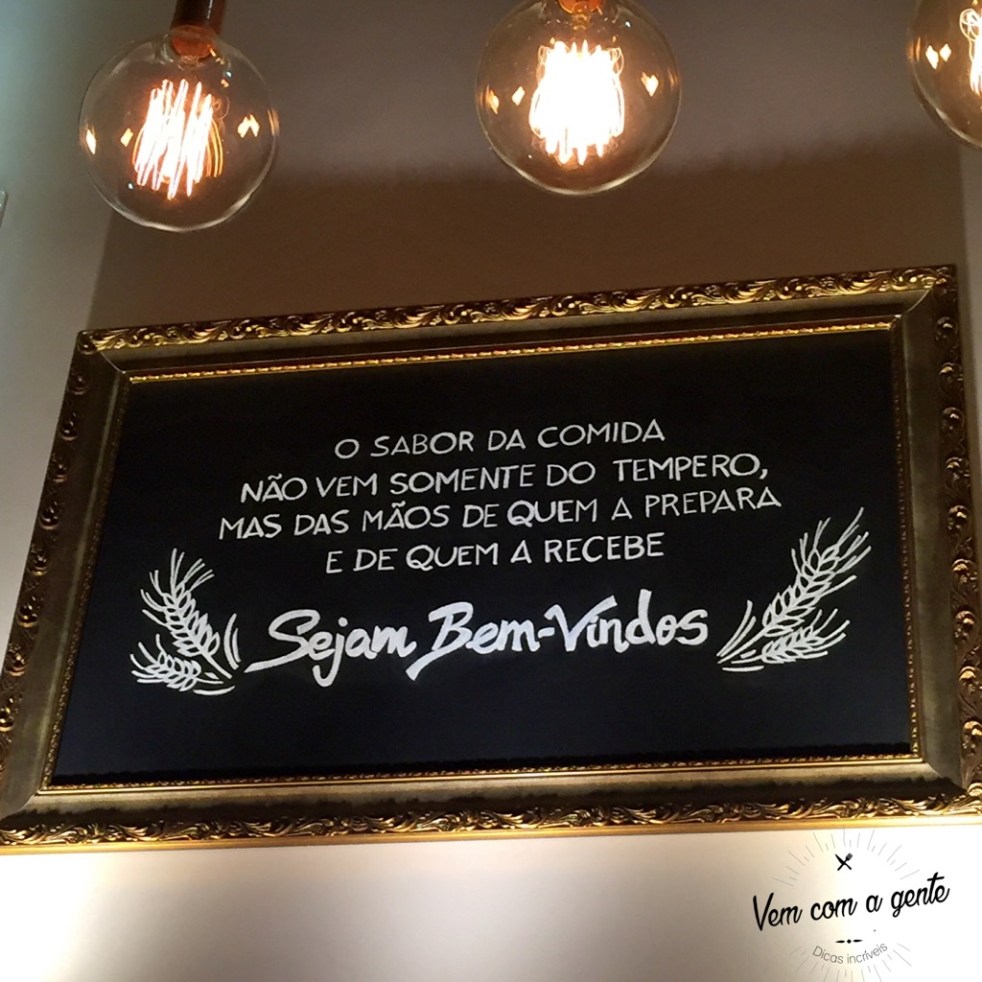 O SABOR DA COMIDA
NÃO VEM SOMENTE DO TEMPERO,
MAS DAS MÃOS DE QUEM A PREPARA
E DE QUEM A RECEBE
Sejam Bem-Vindos
Vem com a gente
Dicas incríveis